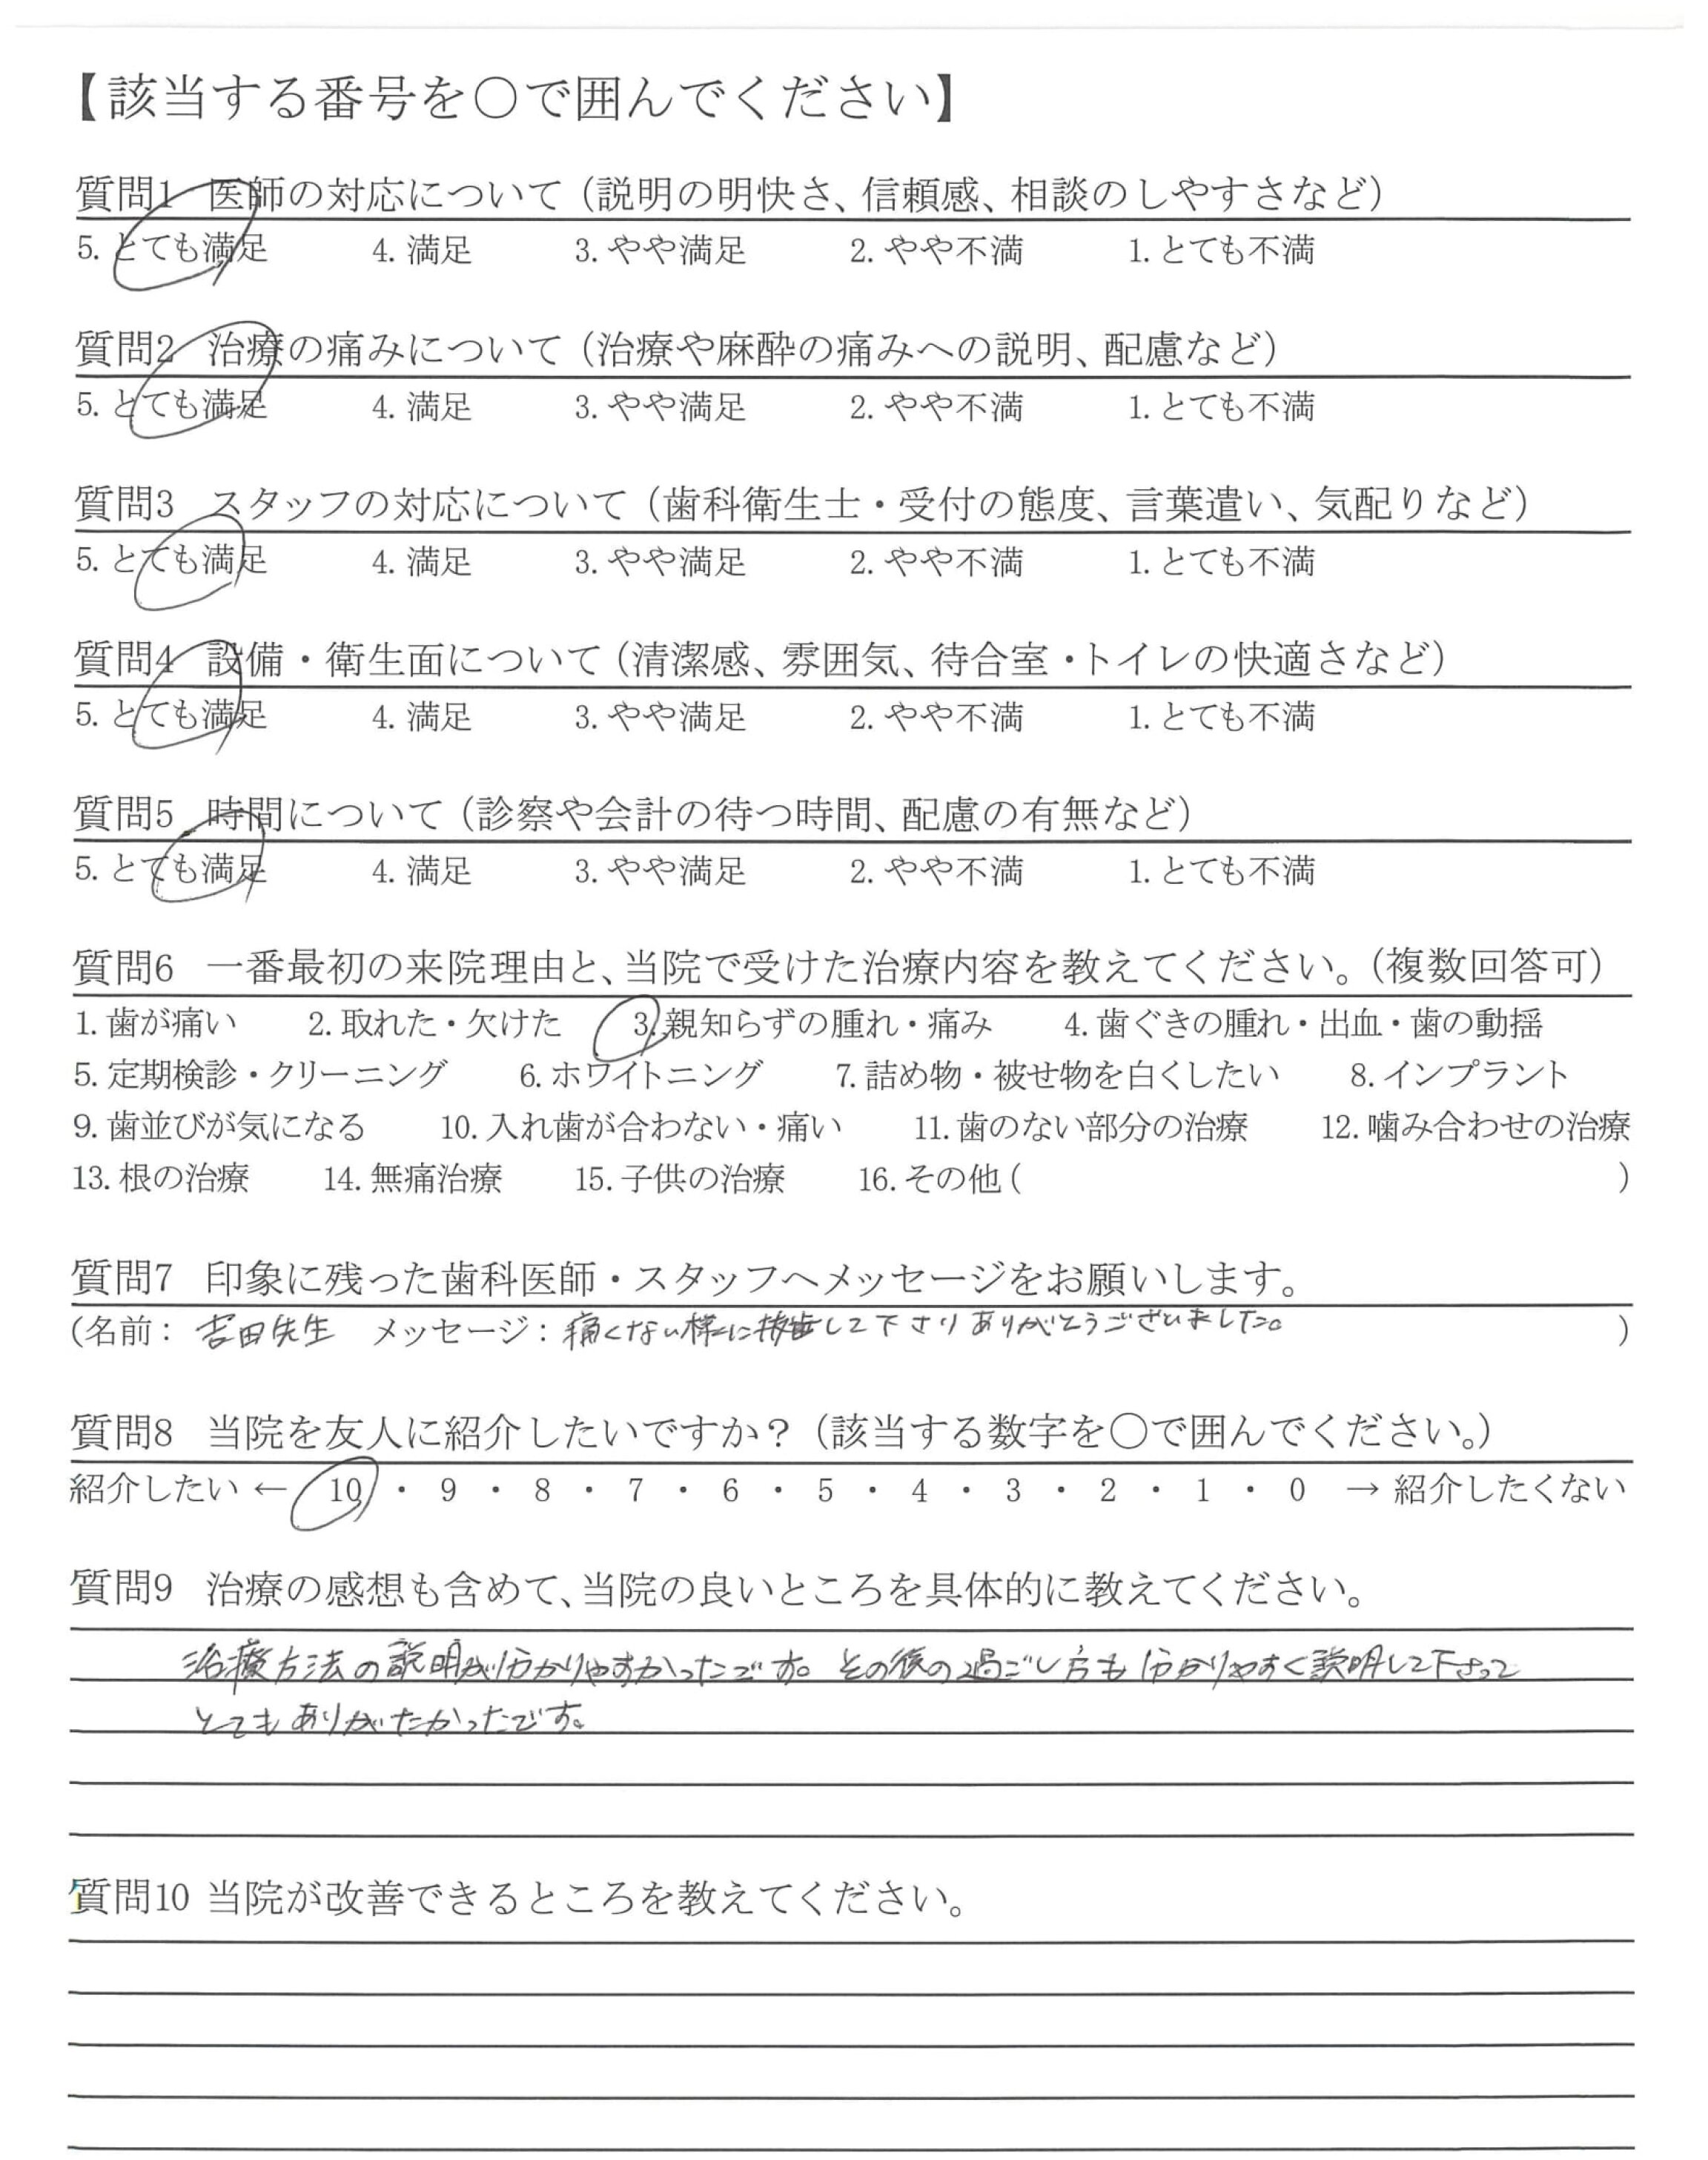 【該当する番号を〇で囲んでください】
質問1 医師の対応について（説明の明快さ、信頼感、相談のしやすさなど）
5. とても満足 4. 満足 3. やや満足 2. やや不満 1. とても不満
質問2 治療の痛みについて（治療や麻酔の痛みへの説明、配慮など）
5. とても満足 4. 満足 3. やや満足 2. やや不満 1. とても不満
質問3 スタッフの対応について（歯科衛生士・受付の態度、言葉遣い、気配りなど）
5. とても満足 4. 満足 3. やや満足 2. やや不満 1. とても不満
質問4 設備・衛生面について（清潔感、雰囲気、待合室・トイレの快適さなど）
5. とても満足 4. 満足 3. やや満足 2. やや不満 1. とても不満
質問5 時間について（診察や会計の待つ時間、配慮の有無など）
5. とても満足 4. 満足 3. やや満足 2. やや不満 1. とても不満
質問6 一番最初の来院理由と、当院で受けた治療内容を教えてください。（複数回答可）
1. 歯が痛い 2. 取れた・欠けた 3. 親知らずの腫れ・痛み 4. 歯ぐきの腫れ・出血・歯の動揺
5. 定期検診・クリーニング 6. ホワイトニング 7. 詰め物・被せ物を白くしたい 8. インプラント
9. 歯並びが気になる 10. 入れ歯が合わない・痛い 11. 歯のない部分の治療 12. 噛み合わせの治療
13. 根の治療 14. 無痛治療 15. 子供の治療 16. その他（ ）
質問7 印象に残った歯科医師・スタッフへメッセージをお願いします。
（名前： 吉田先生 メッセージ：痛くない様に抜歯して下さりありがとうございました。 ）
質問8 当院を友人に紹介したいですか？（該当する数字を〇で囲んでください。）
紹介したい ← 10 ・ 9 ・ 8 ・ 7 ・ 6 ・ 5 ・ 4 ・ 3 ・ 2 ・ 1 ・ 0 → 紹介したくない
質問9 治療の感想も含めて、当院の良いところを具体的に教えてください。
治療方法の説明が分かりやすかったです。その後の過ごし方も分かりやすく説明して下さって
とてもありがたかったです。
質問10 当院が改善できるところを教えてください。